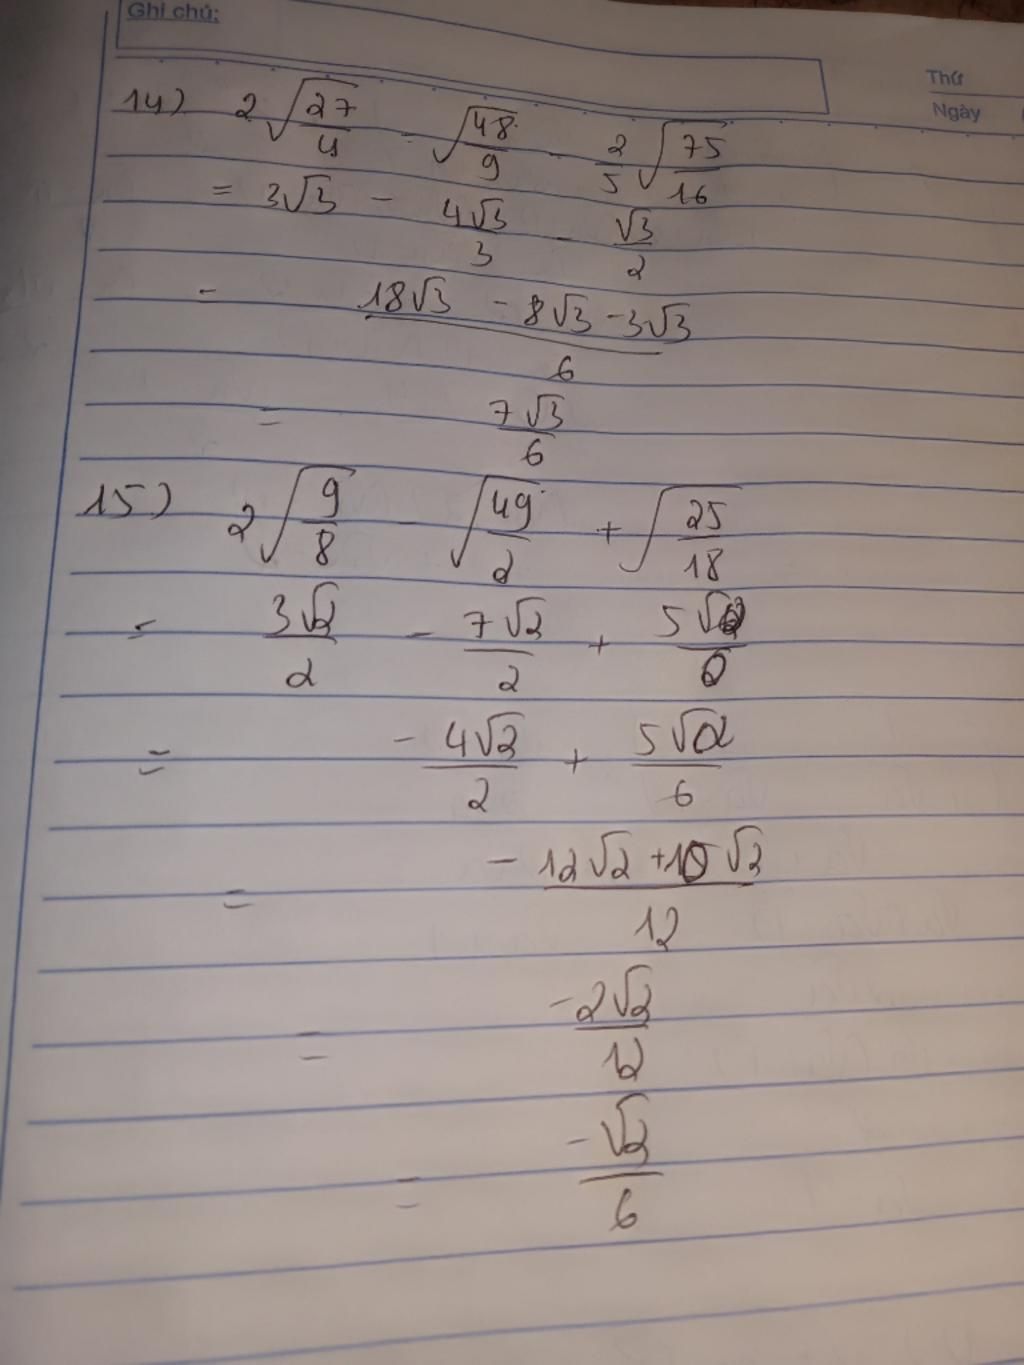 Ghi chú:
Thứ
Ngày
14) 2√(27/4) - √(48/9) - 2/5 √(75/16)
= 3√3 - 4√3/3 - √3/2
- (18√3 - 8√3 - 3√3)/6
= 7√3/6
15) 2√(9/8) - √(49/2) + √(25/18)
= 3√2/2 - 7√2/2 + 5√2/6
= - 4√2/2 + 5√2/6
= (-12√2 + 10√2)/12
= -2√2/12
= -√2/6